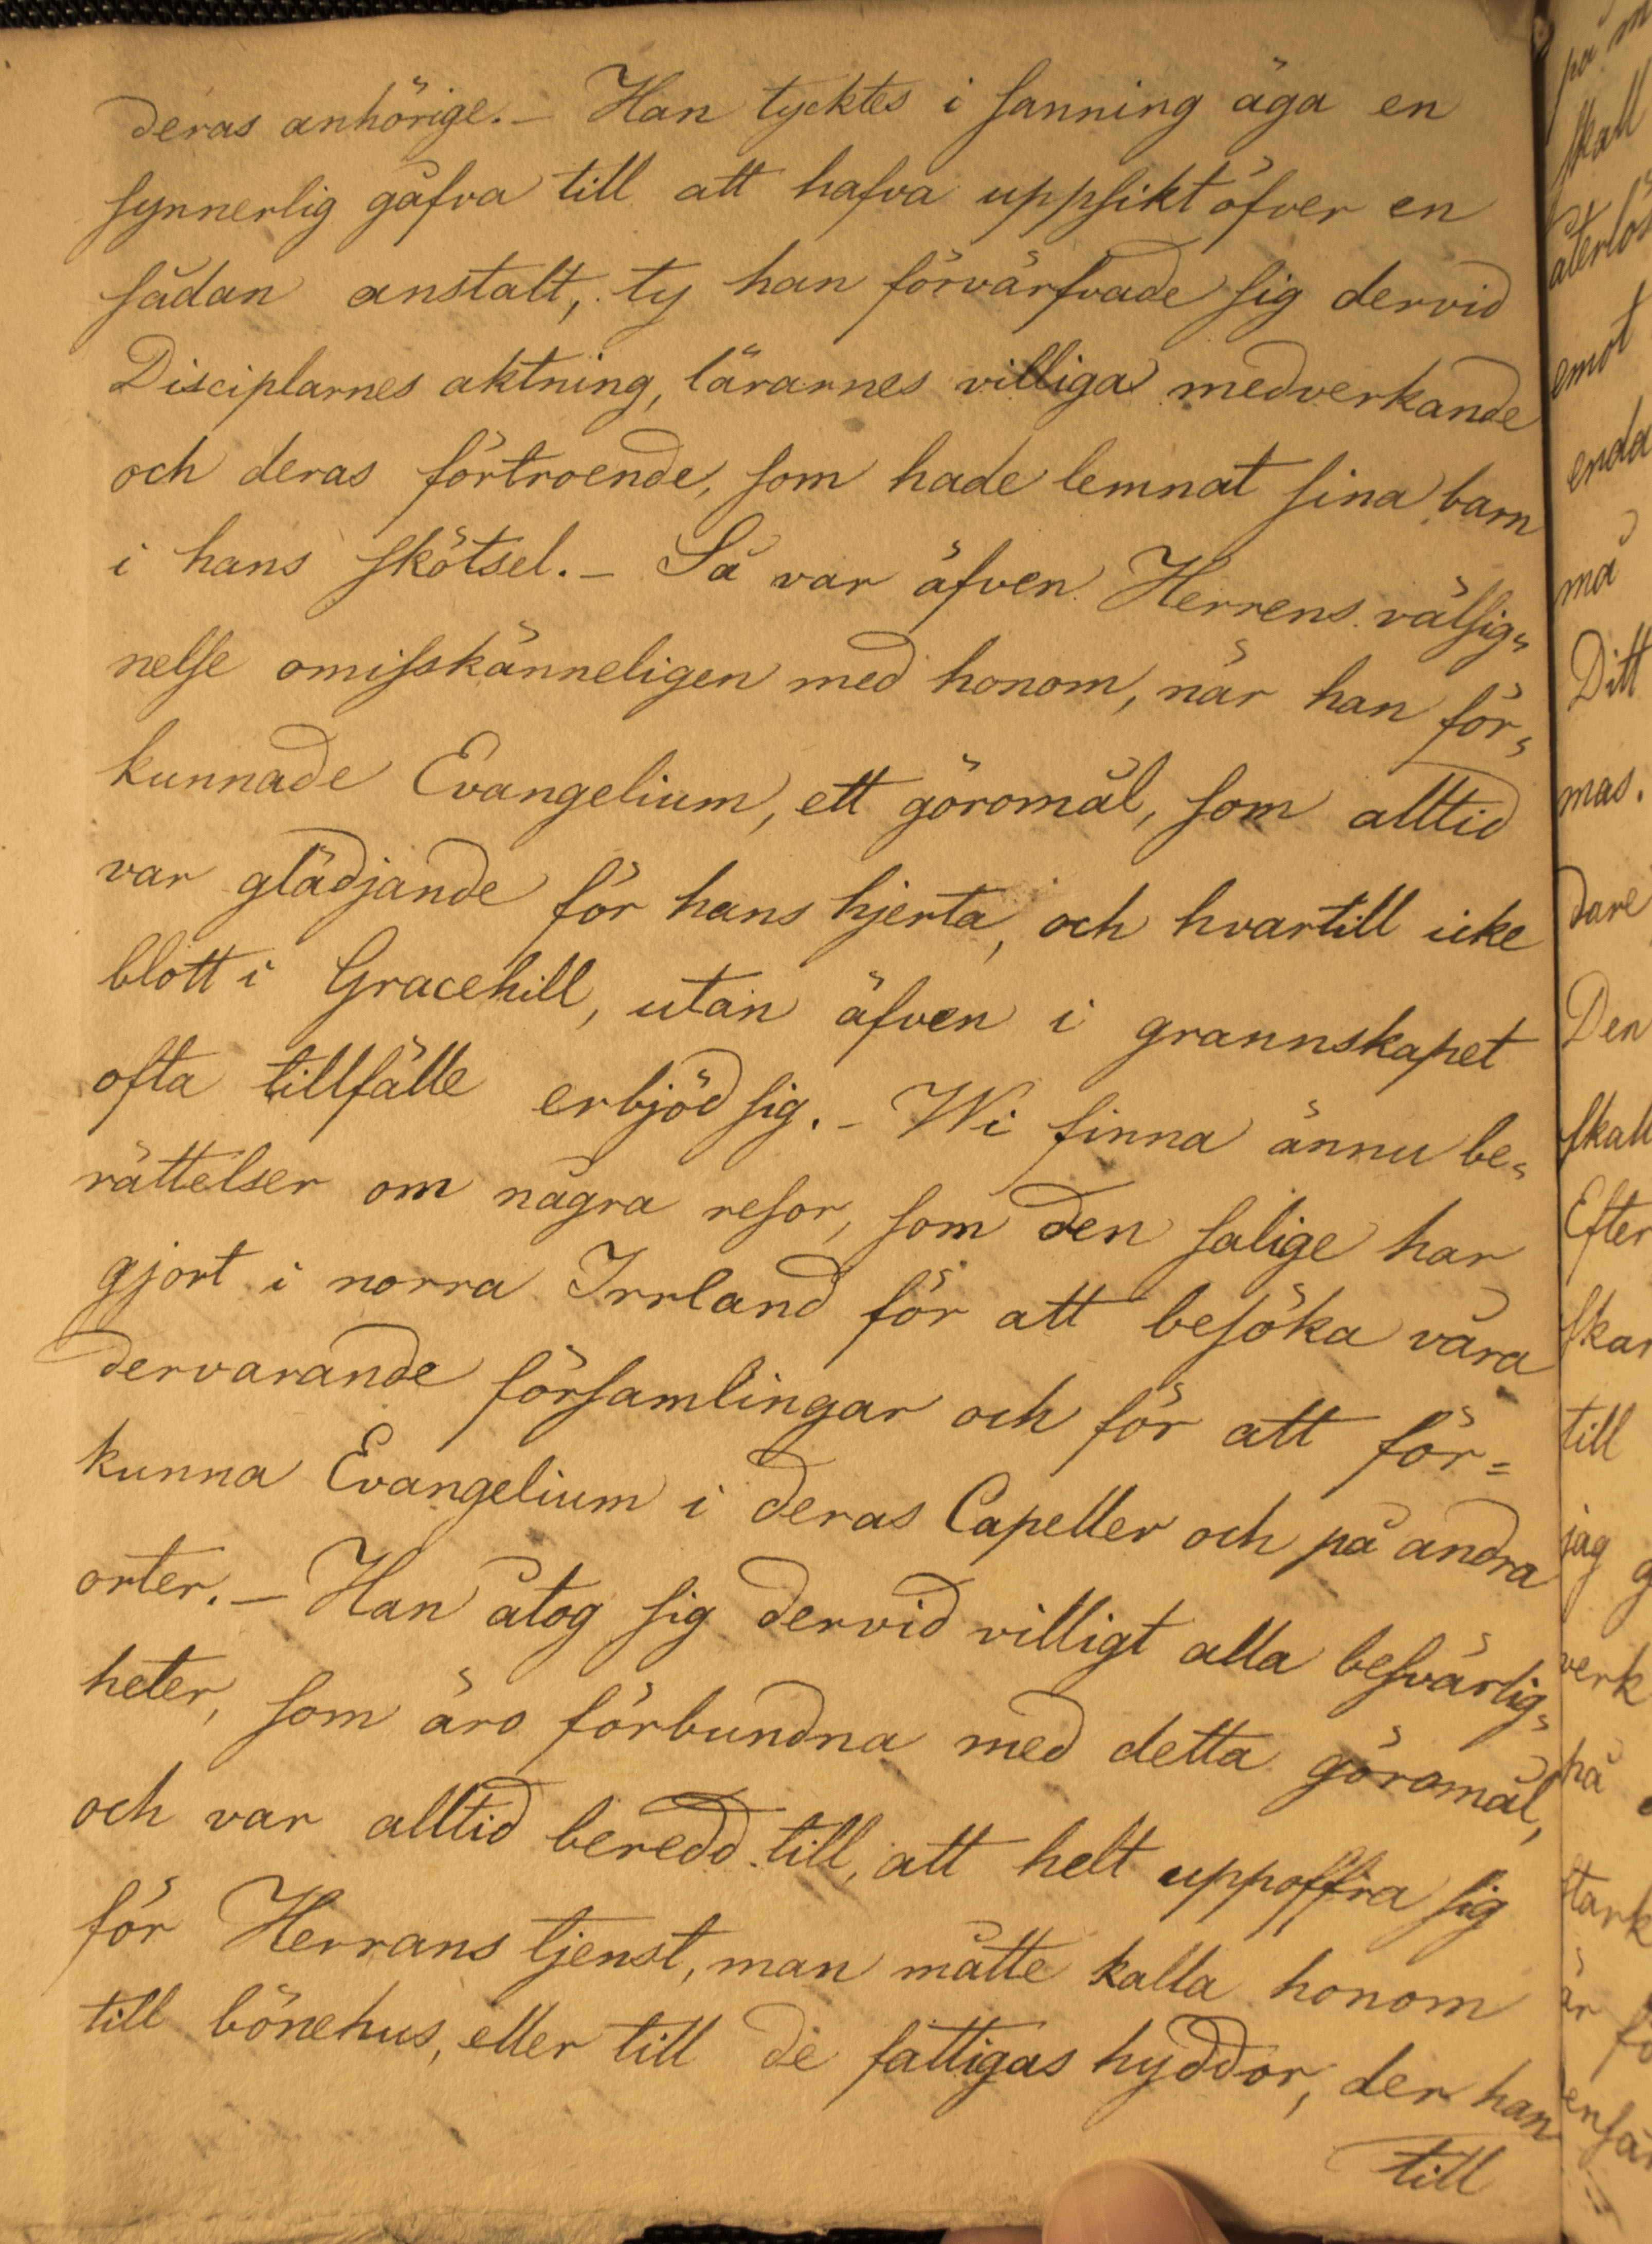 deras anhörige. – Han tycktes i sanning äga en
synnerlig gåfva till att hafva uppsikt öfver en
sådan anstalt, ty han förvärfvade sig dervid
Disciplarnes aktning, lärarnes villiga medverkande
och deras förtroende, som hade lemnat sina barn
i hans skötsel. – Så var äfven Herrens välsig„
nelse omisskänneligen med honom, när han för„
kunnade Evangelium, ett göromål, som alltid
var glädjande för hans hjerta, och hvartill icke
blott i Gracehill, utan äfven i grannskapet
ofta tillfälle erbjöd sig. – Wi finna ännu be„
rättelser om några resor, som den salige har
gjort i norra Irrland för att besöka våra
dervarande församlingar och för att för=
kunna Evangelium i deras Capeller och på andra
orter. – Han åtog sig dervid villigt alla besvärlig„
heter, som äro förbundna med detta göromål,
och var alltid beredd till, att helt uppoffra sig
för Herrans tjenst, man måtte kalla honom
till bönehus, eller till de fattigas hyddor, der han
till
på
skall
återlös
emot
enda
må
Ditt
mas.
dare
Den
skall
Efter
skar
till
jag g
verk
på
stark
är fö